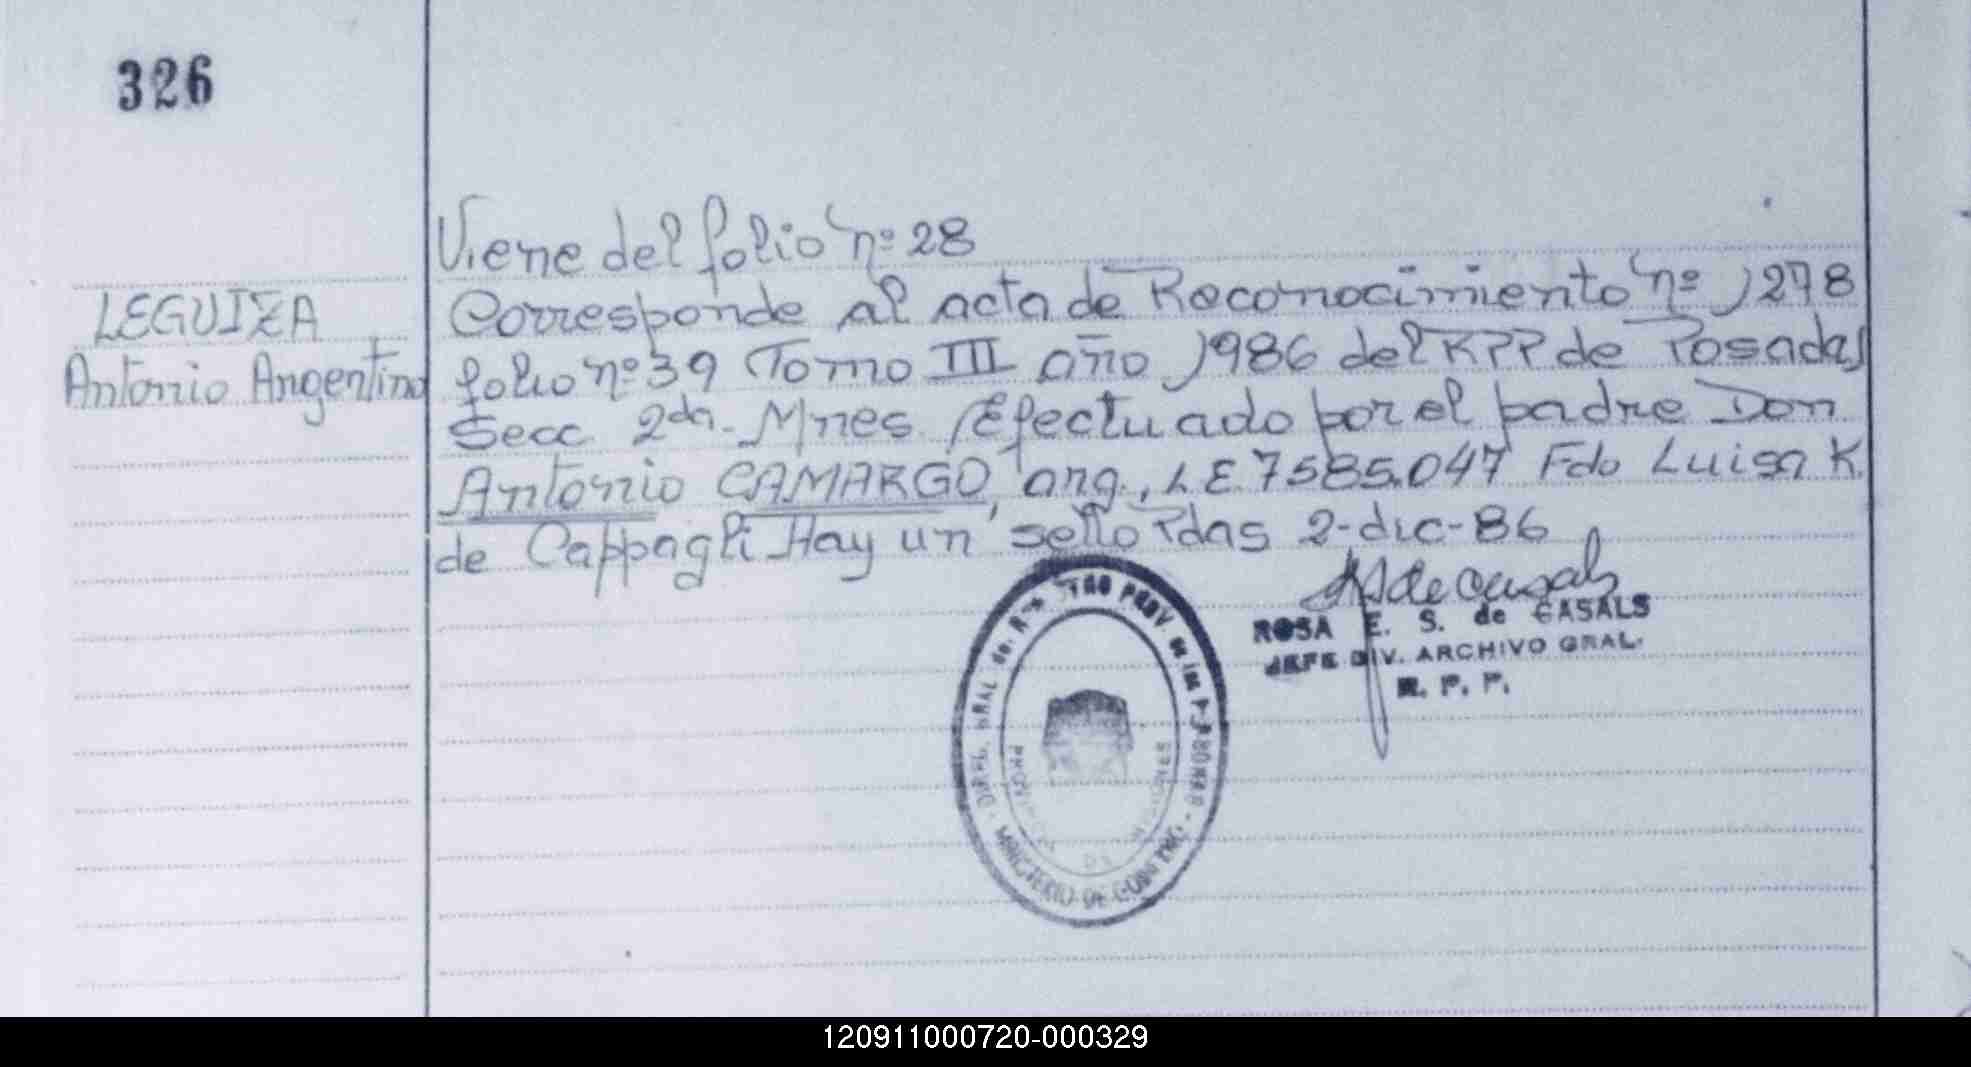 326
Viene del folio nº 28
LEGUIZA
Antonio Argentino
Corresponde al acta de Reconocimiento nº 1278
folio nº 39 Tomo III año 1986 del RPP de Posadas
Secc. 2da. Mnes. Efectuado por el padre Don
Antonio CAMARGO, arg., L E. 7585.047 Fdo Luisa K.
de Cappagli Hay un sello Pdas 2-dic-86
ROSA E. S. de CASALS
JEFE DIV. ARCHIVO GRAL.
R. P. P.
GRAL de
PROV. de las P
MINISTERIO DE GOBIERNO
DE MISIONES
120911000720-000329